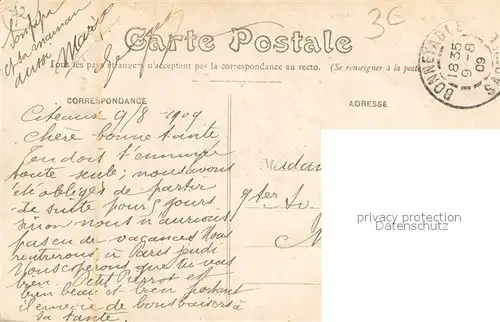 ton papa
et ta maman
aussi Maria
3€
Carte Postale
Tous les pays étrangers n'acceptent pas la correspondance au recto. (Se renseigner à la poste
BONNÉTABLE
18 35
9 -8
09
CORRESPONDANCE
ADRESSE
Citeaux 9/8 1909
Chère bonne tante
Tu dois t'ennuyer
toute seule; nous avons
été obligés de partir
de suite pour 5 jours
sinon nous n'aurions
pas eu de vacances Nous
rentrerons à Paris jeudi
Nous espérons que tu vas
bien. Petit Pierrot est
bien beau et bien portant
il envoie de bons baisers à
sa tante.
Madam
9 ter Av.
privacy protection
Datenschutz